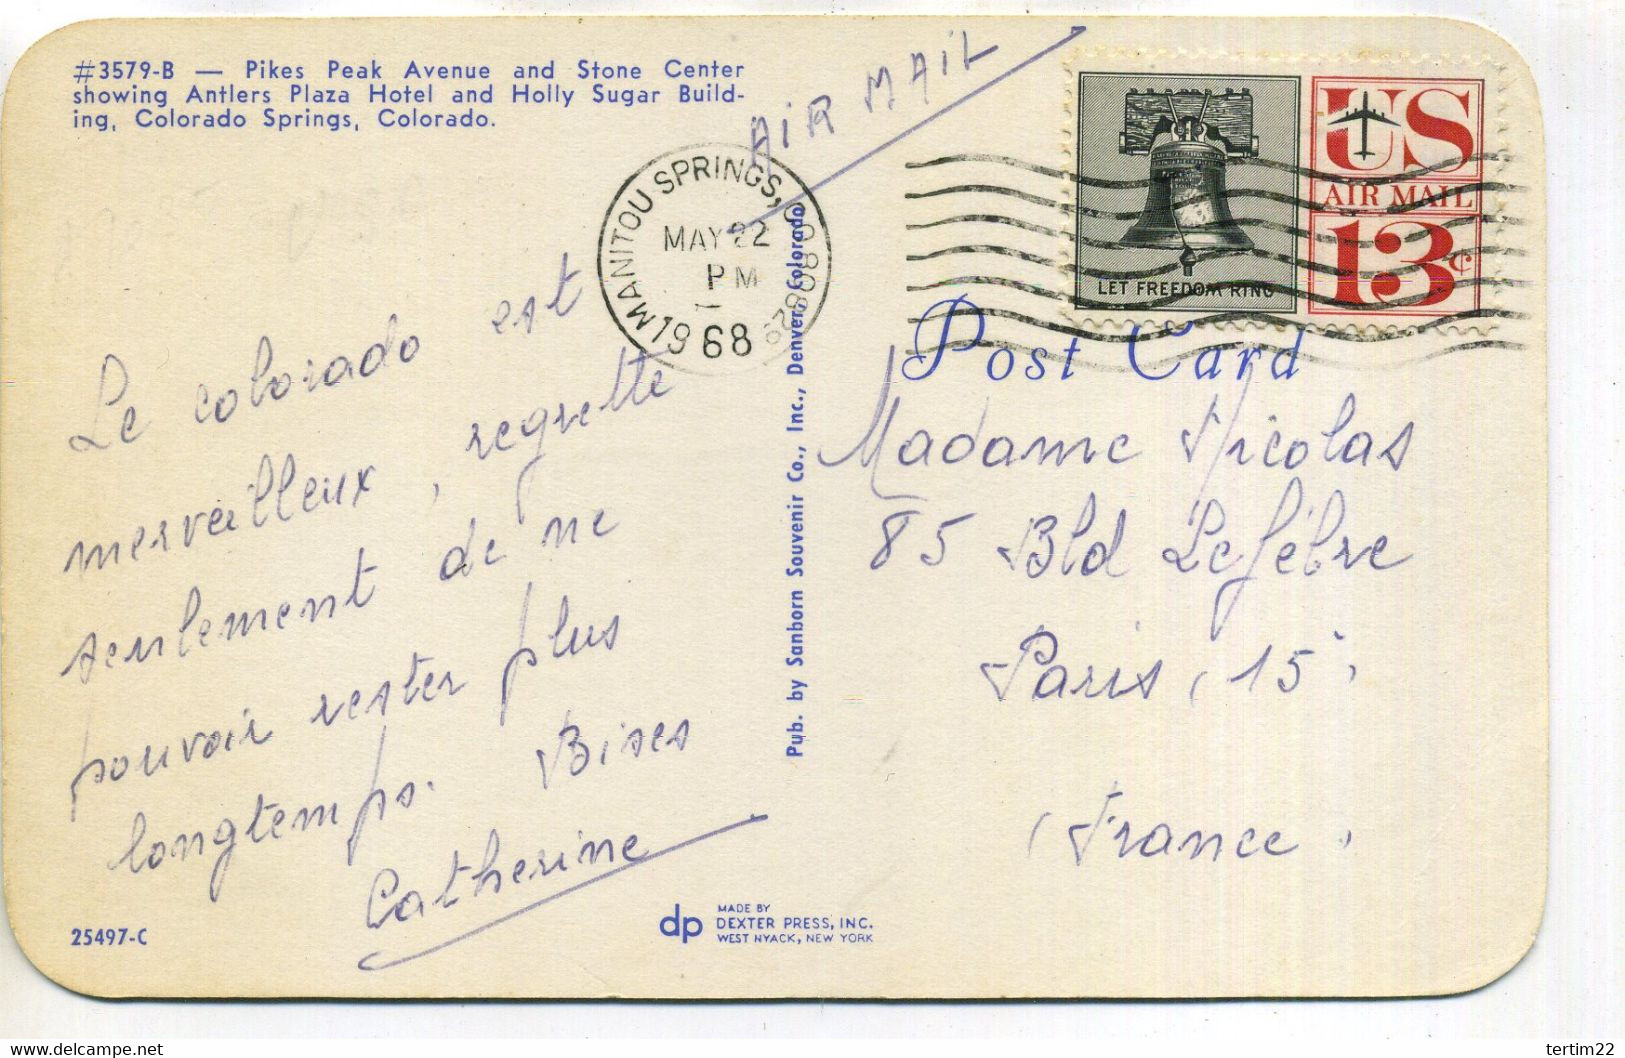 #3579-B — Pikes Peak Avenue and Stone Center
showing Antlers Plaza Hotel and Holly Sugar Build-
ing, Colorado Springs, Colorado.
AIR MAIL
MANITOU SPRINGS, COLO 80829
MAY 22
PM
1968
US
AIR MAIL
13¢
LET FREEDOM RING
Post Card
Le colorado est
merveilleux, regrette
seulement de ne
pouvoir rester plus
longtemps. Bises
Catherine
Pub. by Sanborn Souvenir Co., Inc., Denver, Colorado
Madame Nicolas
85 Bld Lefébre
Paris (15°)
(France)
25497-C
dp
MADE BY
DEXTER PRESS, INC.
WEST NYACK, NEW YORK
www.delcampe.net
tertim22